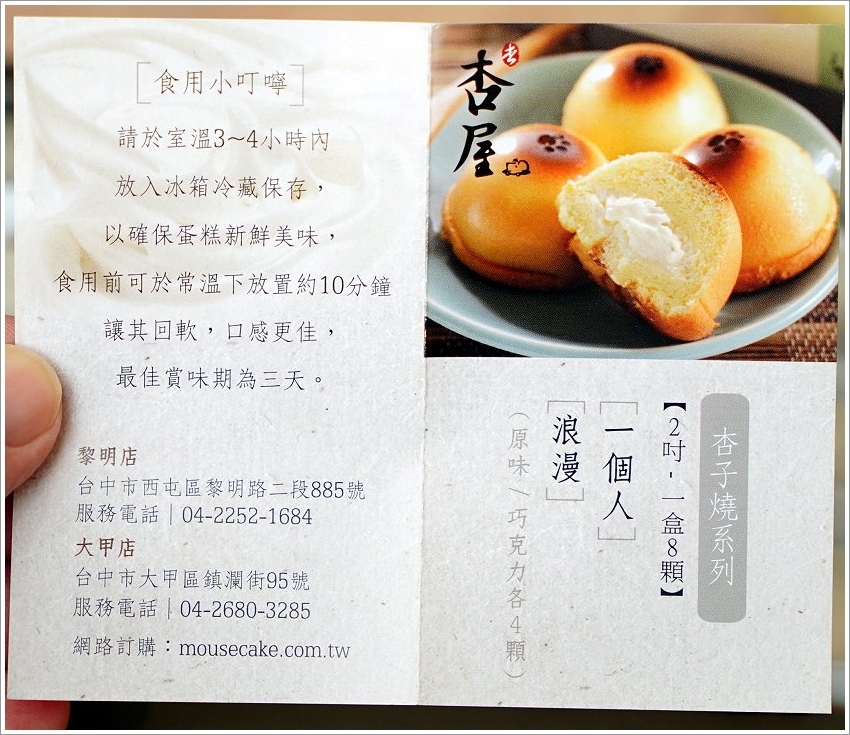 [食用小叮嚀]
請於室溫3~4小時內
放入冰箱冷藏保存，
以確保蛋糕新鮮美味，
食用前可於常溫下放置約10分鐘
讓其回軟，口感更佳，
最佳賞味期為三天。
黎明店
台中市西屯區黎明路二段885號
服務電話｜04-2252-1684
大甲店
台中市大甲區鎮瀾街95號
服務電話｜04-2680-3285
網路訂購：mousecake.com.tw
杏屋
杏子燒系列
【2吋-一盒8顆】
[一個人]
[浪漫]
（原味/巧克力各4顆）